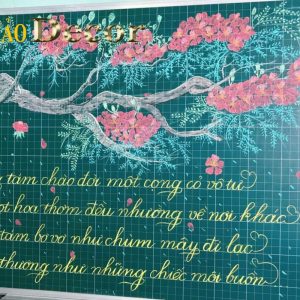 ẢO Decor
tám chào đời một cọng cỏ vô tư
hoa thơm đều nhường về nơi khác
tám bơ vơ như chùm mây đi lạc
thương như những chiếc môi buồn